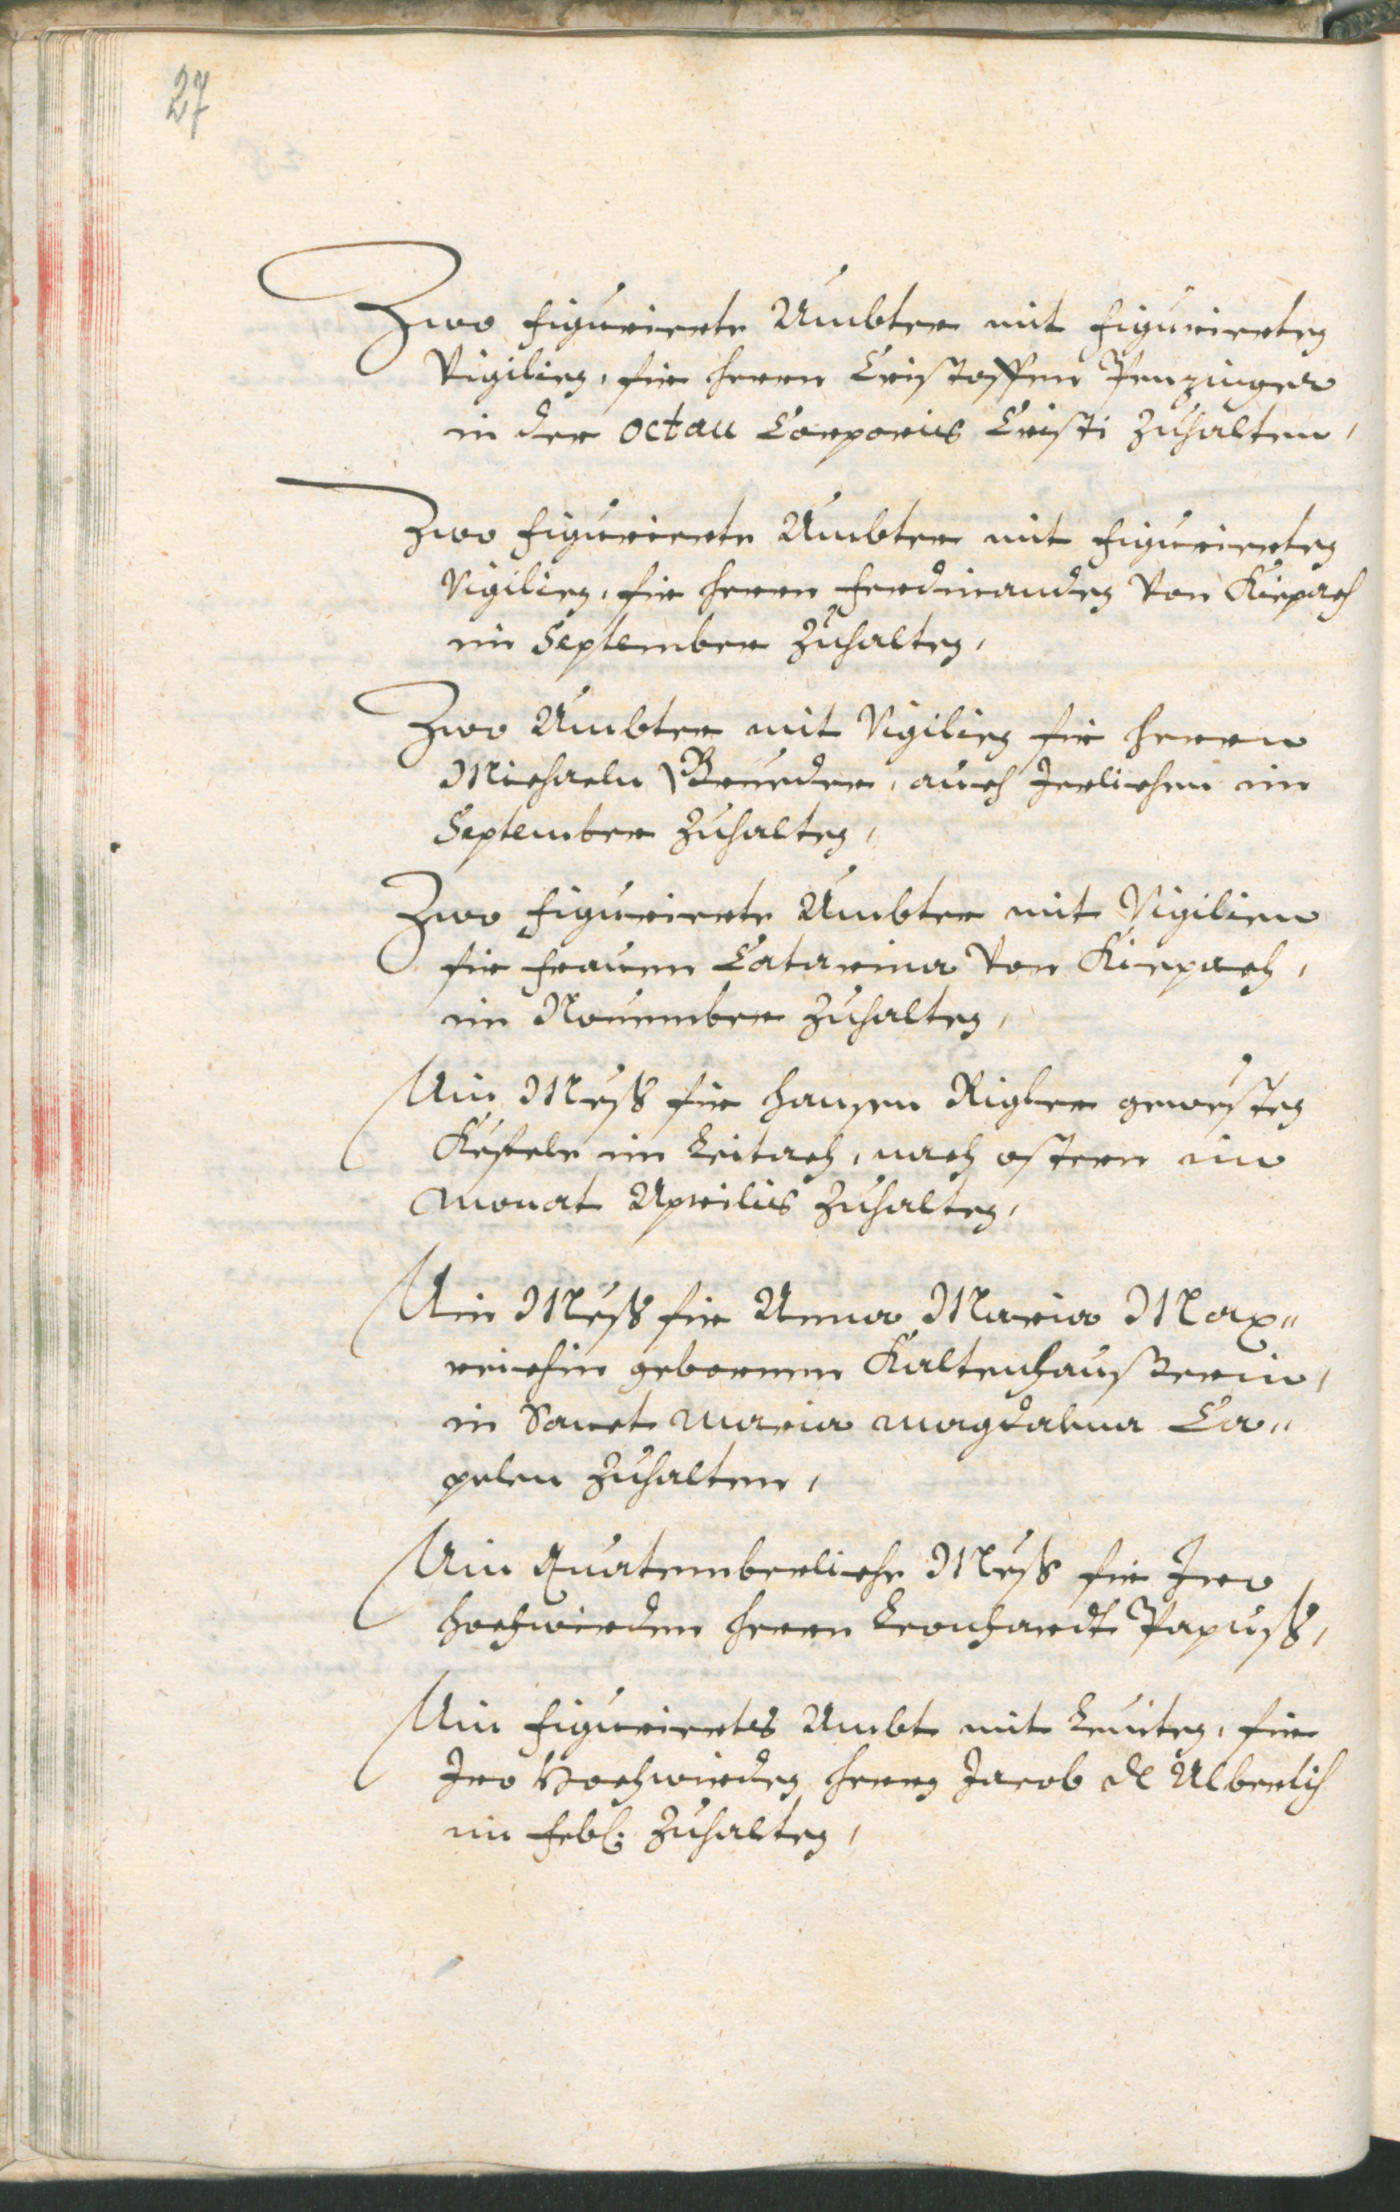 27
Zwo figurierte Ambter mit figurierten
Vigilien, fir herrn Cristoffen Penzinger
in der octau Corporis Cristi zuhalten,
Zwo figurierte Ambter mit figurierten
Vigilien, fir herrn Ferdinanden von Kiepach
im September zuhalten,
Zwo Ambter mit Vigilien fir herrn
Michaeln Brueder, auch Jerlichen im
September zuhalten,
Zwo figurierte Ambter mit Vigilien
fir frauen Catarina von Kiepach,
im Nouember zuhalten,
Ain Mess fir hansen Rigler gewesten
Kesfeler im Leitach, nach ostern im
monat Aprilis zuhalten,
Ain Mess fir Anna Maria Max„
reichin gebornen Kaltenhauserin,
in Sanct maria magdalena Ca„
pelen zuhalten,
Ain Quatemberliche Mess fir Iro
hochwirden herrn Leonhardt Papuss,
Ain figuriertes Ambt mit Leuiten, fir
Iro Hochwirden herrn Jacob de Alberlich
im feb: zuhalten,